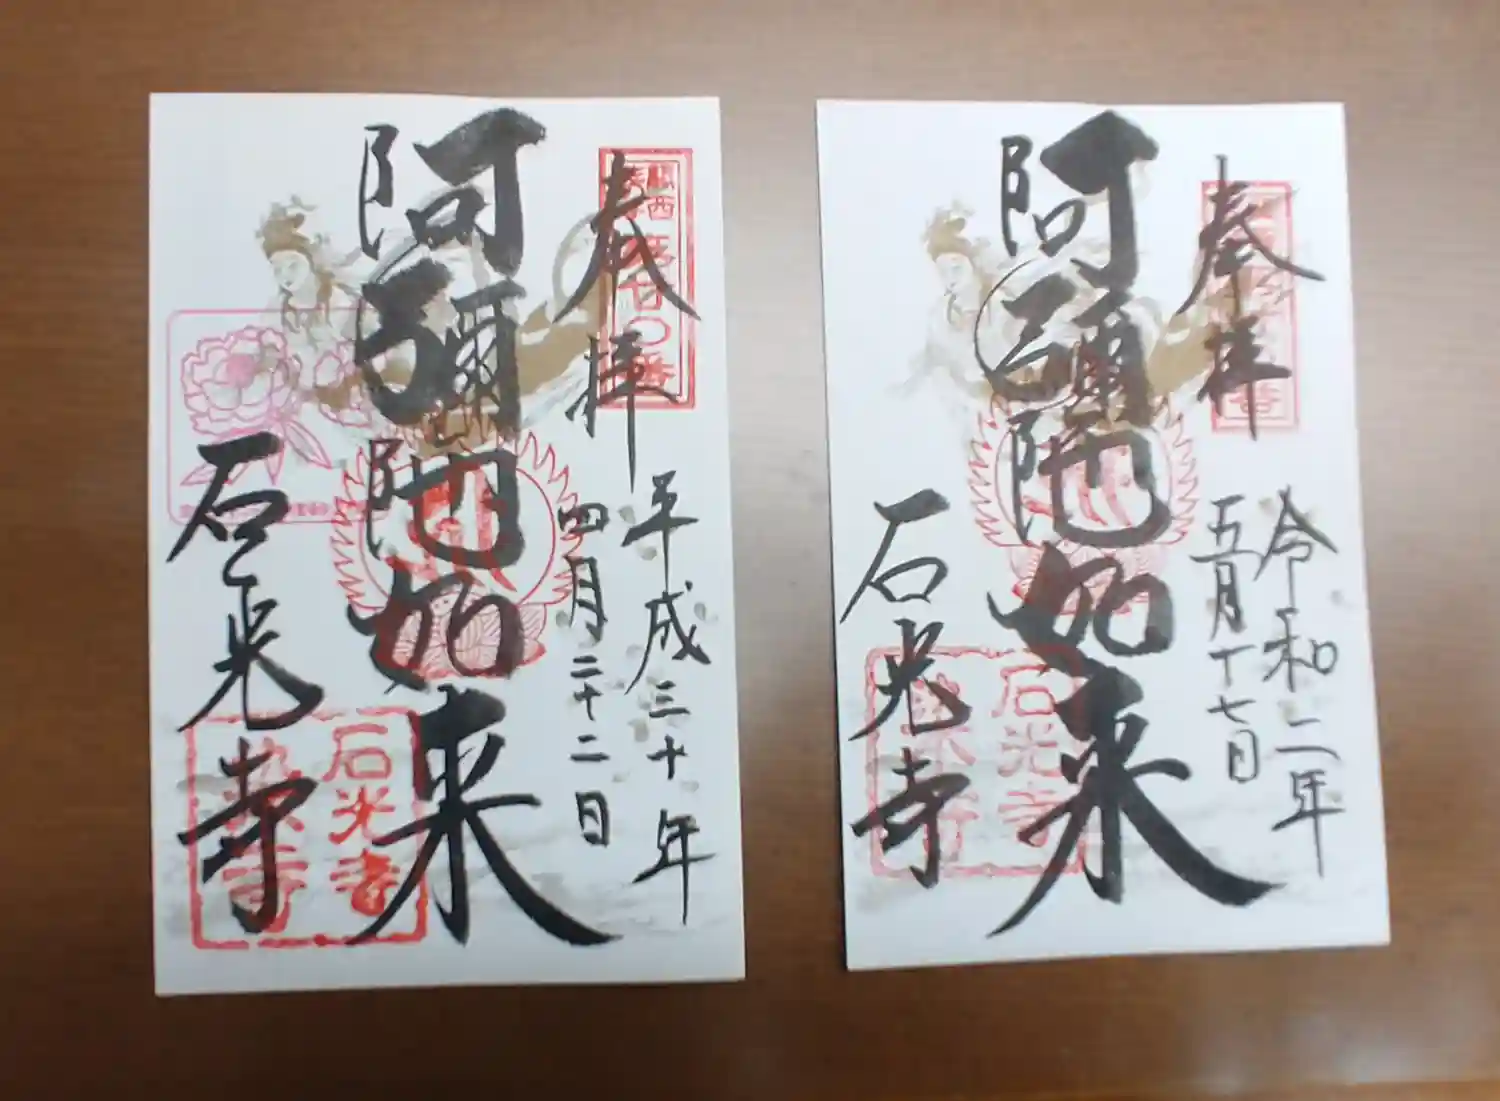 奉拝
平成三十年
四月二十二日
阿彌陀如来
石光寺
石光寺
染寺
奉拝
令和二年
五月十七日
阿彌陀如来
石光寺
石光寺
染寺